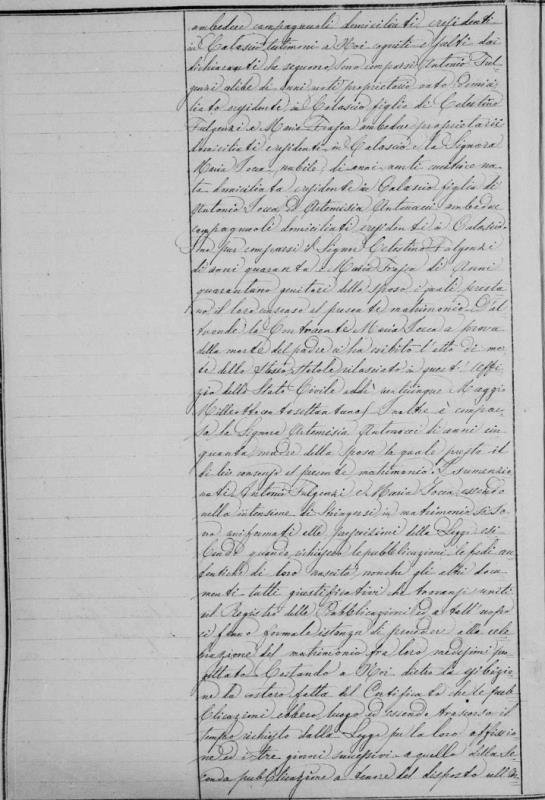 ambedue campagnuoli domiciliati e residenti
in Calascio testimoni a Noi cogniti e fatti dai
dichiaranti che seguono sono comparsi Antonio Ful
genzi celibe di anni venti proprietario nato domici
liato e residente in Calascio figlio di Celestino
Fulgenzi e Maria Frasca ambedue proprietarii
domiciliati e residenti in Calascio e la Signora
Maria Jocca nubile di anni venti cucitrice na
ta domiciliata e residente in Calascio figlia di
Antonio Jocca e d'Artemisia Antonacci ambedue
campagnuoli domiciliati e residenti a Calascio.
Sono pur comparsi il Signor Celestino Fulgenzi
di anni quaranta e Maria Frasca di Anni
quarantuno genitori dello sposo i quali presta
no il loro consenso al presente matrimonio. D'al
tronde la Contraente Maria Jocca a prova
della morte del padre ci ha esibito l'atto di mor
te dello stesso rilasciato in quest'Uffi
zio dello Stato Civile addì venticinque Maggio
Milleottocentosettantuno. Inoltre è compar
sa la Signora Artemisia Antonacci di anni cin
quanta madre della sposa la quale presta il
di lei consenso al presente matrimonio. I sumenzio
nati Antonio Fulgenzi e Maria Jocca essendo
nella intensione di stringersi in matrimonio si so
no uniformati alle prescrisioni della Legge esi
bendo quando richiesero le pubblicazioni le fedi au
tentiche di loro nascita nonche gli altri docu
menti tutti giustificativi che trovansi uniti
al Registro delle Pubblicazioni ed a tall'uopo
ci fanno formale istanza di procedere alla cele
brazione del matrimonio fra loro medesimi pro
gettato. Costando a Noi dietro la esibizio
ne da costoro fatta del Certificato che le pub
blicazioni ebbero luogo ed essendo trascorso il
tempo richiesto dalla Legge per la loro affissio
ne ed i tre giorni successivi a quello della se
conda pubblicazione a tenore del disposto nell'Ar